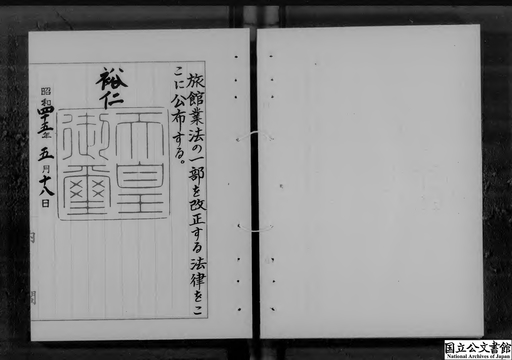 旅館業法の一部を改正する法律をこ
こに公布する。
裕仁
天皇
御璽
昭和四十五年五月十八日
内閣
国立公文書館
National Archives of Japan